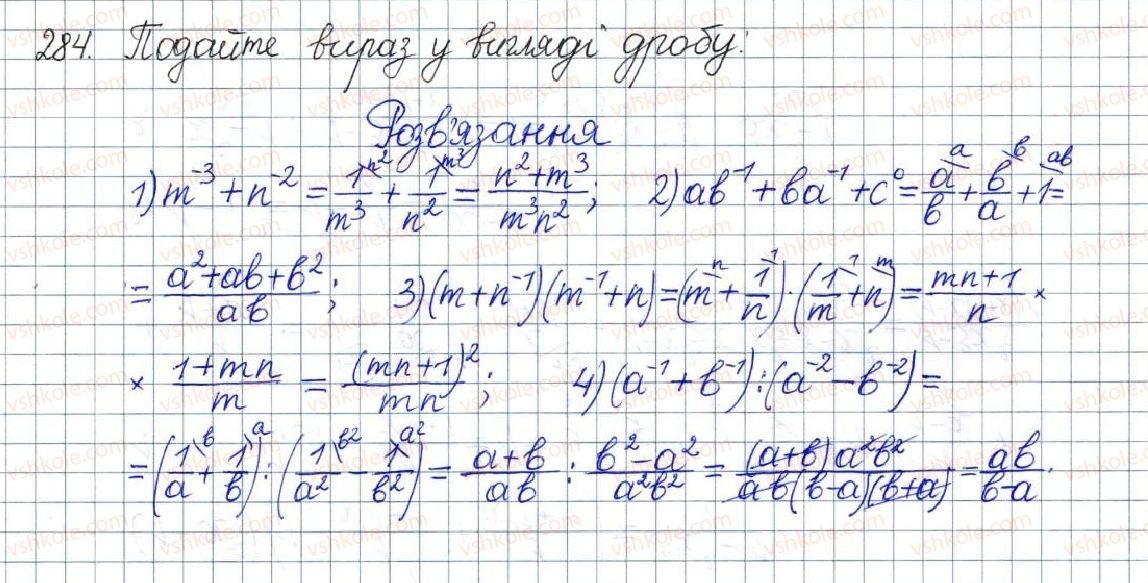 284. Подайте вираз у вигляді дробу:
Розв'язання
1) m⁻³ + n⁻² = 1\ⁿ²/m³ + 1\ᵐ³/n² = (n² + m³)/(m³n²); 2) ab⁻¹ + ba⁻¹ + c⁰ = a\ᵃ/b + b\ᵇ/a + 1\ᵃᵇ =
= (a² + ab + b²)/(ab); 3) (m + n⁻¹)(m⁻¹ + n) = (m\ⁿ + 1\¹/n) · (1\¹/m + n\ᵐ) = (mn + 1)/n ×
× (1 + mn)/m = (mn + 1)²/(mn); 4) (a⁻¹ + b⁻¹) : (a⁻² − b⁻²) =
= (1\ᵇ/a + 1\ᵃ/b) : (1\ᵇ²/a² − 1\ᵃ²/b²) = (a + b)/(ab) : (b² − a²)/(a²b²) = ((a + b) a²b²)/(ab(b − a)(b + a)) = ab/(b − a).